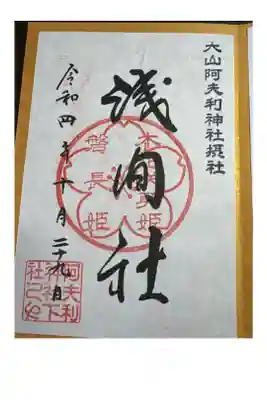 大山阿夫利神社摂社
淺間社
磐長姫
令和四年十月二十九日
阿夫利
神社下
社之印